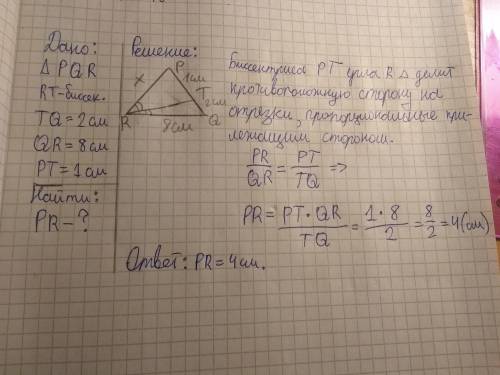 Дано:
Δ PQR
RT-биссек.
TQ = 2 см
QR = 8 см
PT = 1 см
Найти:
PR - ?
Решение:
P
1см
x
T
2см
R
8см
Q
Биссектриса РТ угла R Δ делит
противоположную сторону на
отрезки, пропорциональные при-
лежащим сторонам.
PR/QR = PT/TQ =>
PR = PT·QR/TQ = 1·8/2 = 8/2 = 4(см)
Ответ: PR = 4 см.